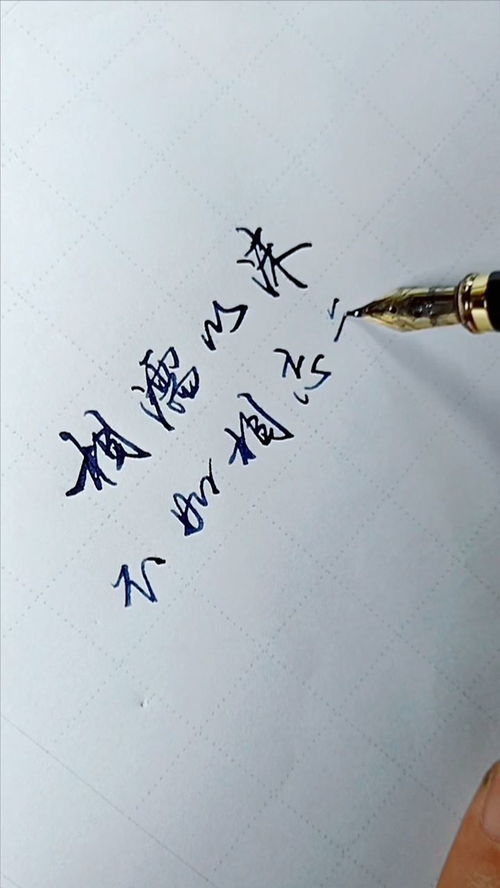 相濡以沫
不如相忘